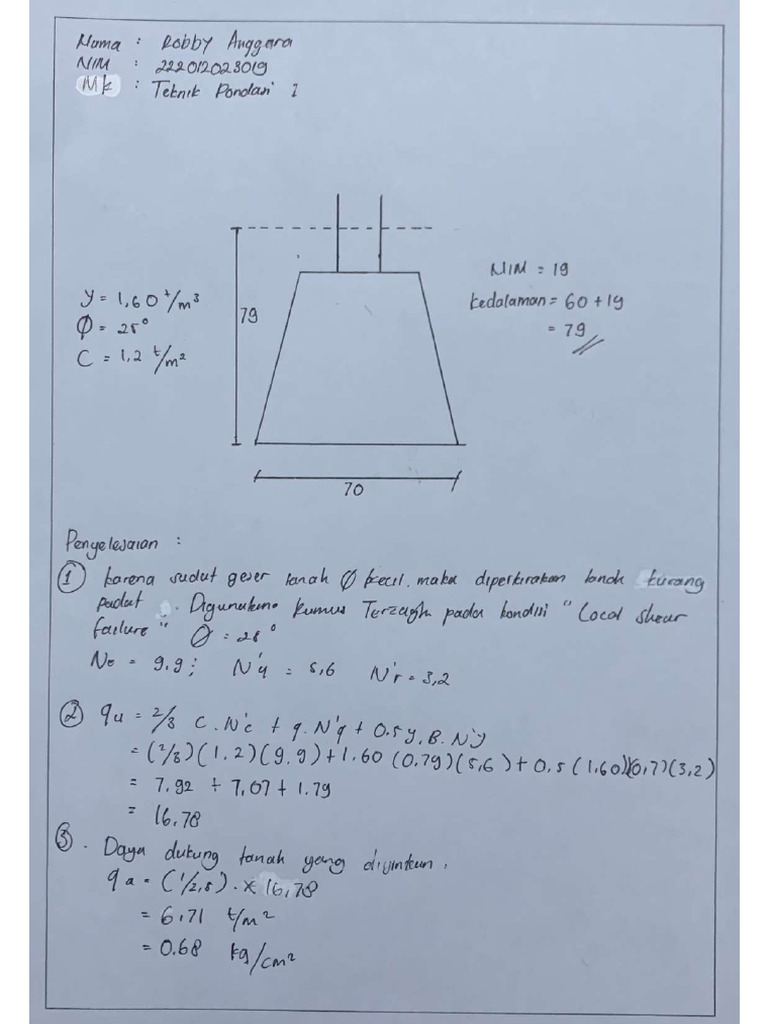 Nama : Robby Anggara
NIM : 222012023019
Mk : Teknik Pondasi 1
γ = 1,60 t/m³
Ø = 25°
C = 1,2 t/m²
79
70
NIM = 19
Kedalaman = 60 + 19
= 79
Penyelesaian :
① Karena sudut geser tanah Ø kecil. maka diperkirakan tanah kurang
padat . Digunakan rumus Terzagh pada kondisi " Local shear
failure " Ø = 25°
Nc = 9.9 ; N'q = 5,6 N'r = 3,2
② qu = 2/3 C . N'c + q. N'q + 0.5 γ. B. N'γ
= (2/3)(1.2)(9.9) + 1.60 (0.79)(5,6) + 0,5 (1,60)(0,7)(3,2)
= 7,92 + 7,07 + 1.79
= 16,78
③ . Daya dukung tanah yang diijinkan .
qa = (1/2,5) . x 16,78
= 6,71 t/m²
= 0.68 kg/cm²